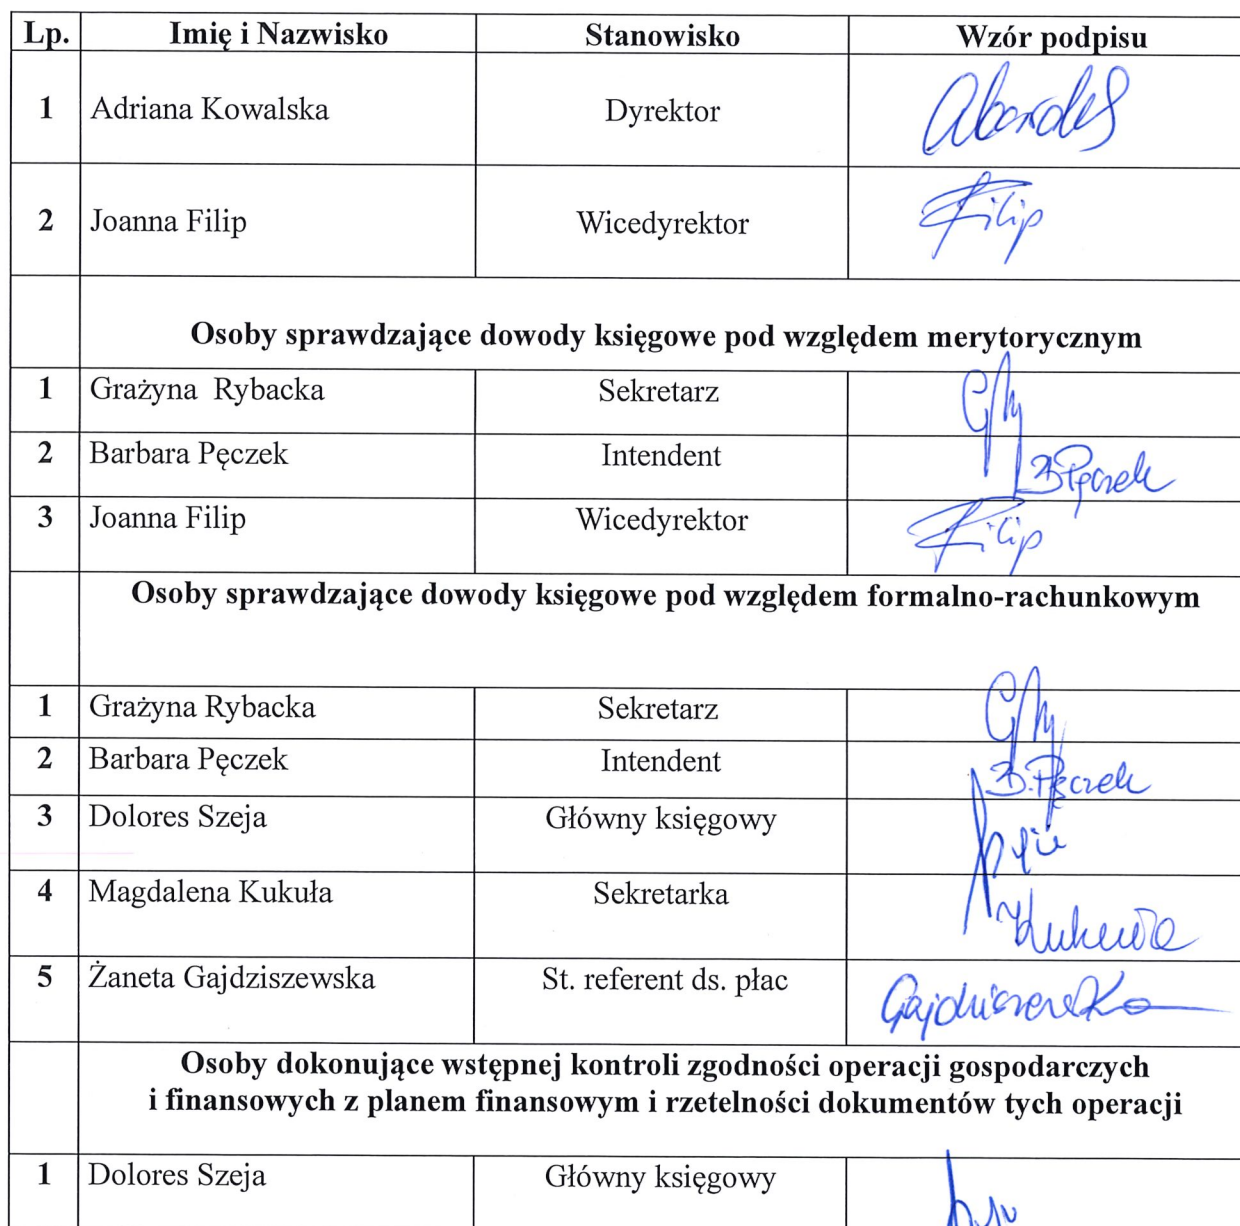 Lp. Imię i Nazwisko Stanowisko Wzór podpisu
1 Adriana Kowalska Dyrektor
2 Joanna Filip Wicedyrektor Filip
Osoby sprawdzające dowody księgowe pod względem merytorycznym
1 Grażyna Rybacka Sekretarz
2 Barbara Pęczek Intendent B Pęczek
3 Joanna Filip Wicedyrektor Filip
Osoby sprawdzające dowody księgowe pod względem formalno-rachunkowym
1 Grażyna Rybacka Sekretarz
2 Barbara Pęczek Intendent B. Pęczek
3 Dolores Szeja Główny księgowy
4 Magdalena Kukuła Sekretarka Kukuła
5 Żaneta Gajdziszewska St. referent ds. płac Gajdziszewska
Osoby dokonujące wstępnej kontroli zgodności operacji gospodarczych
i finansowych z planem finansowym i rzetelności dokumentów tych operacji
1 Dolores Szeja Główny księgowy